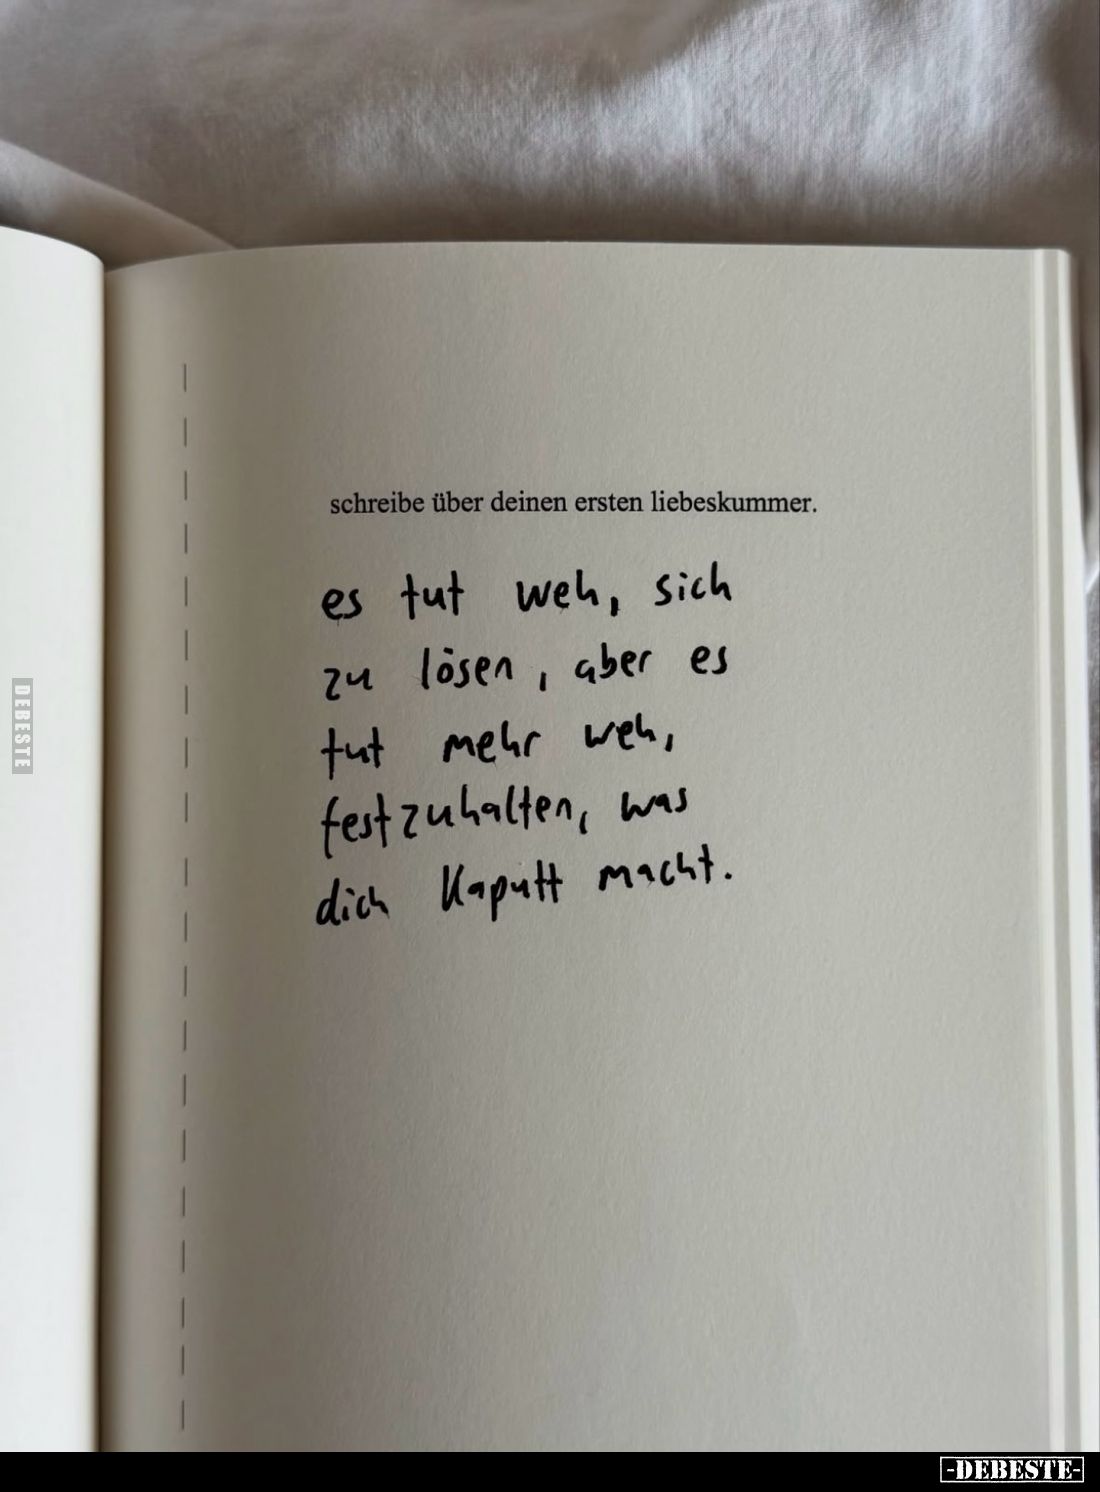 schreibe über deinen ersten liebeskummer.
es tut weh, sich
zu lösen, aber es
tut mehr weh,
festzuhalten, was
dich kaputt macht.
DEBESTE
-DEBESTE-